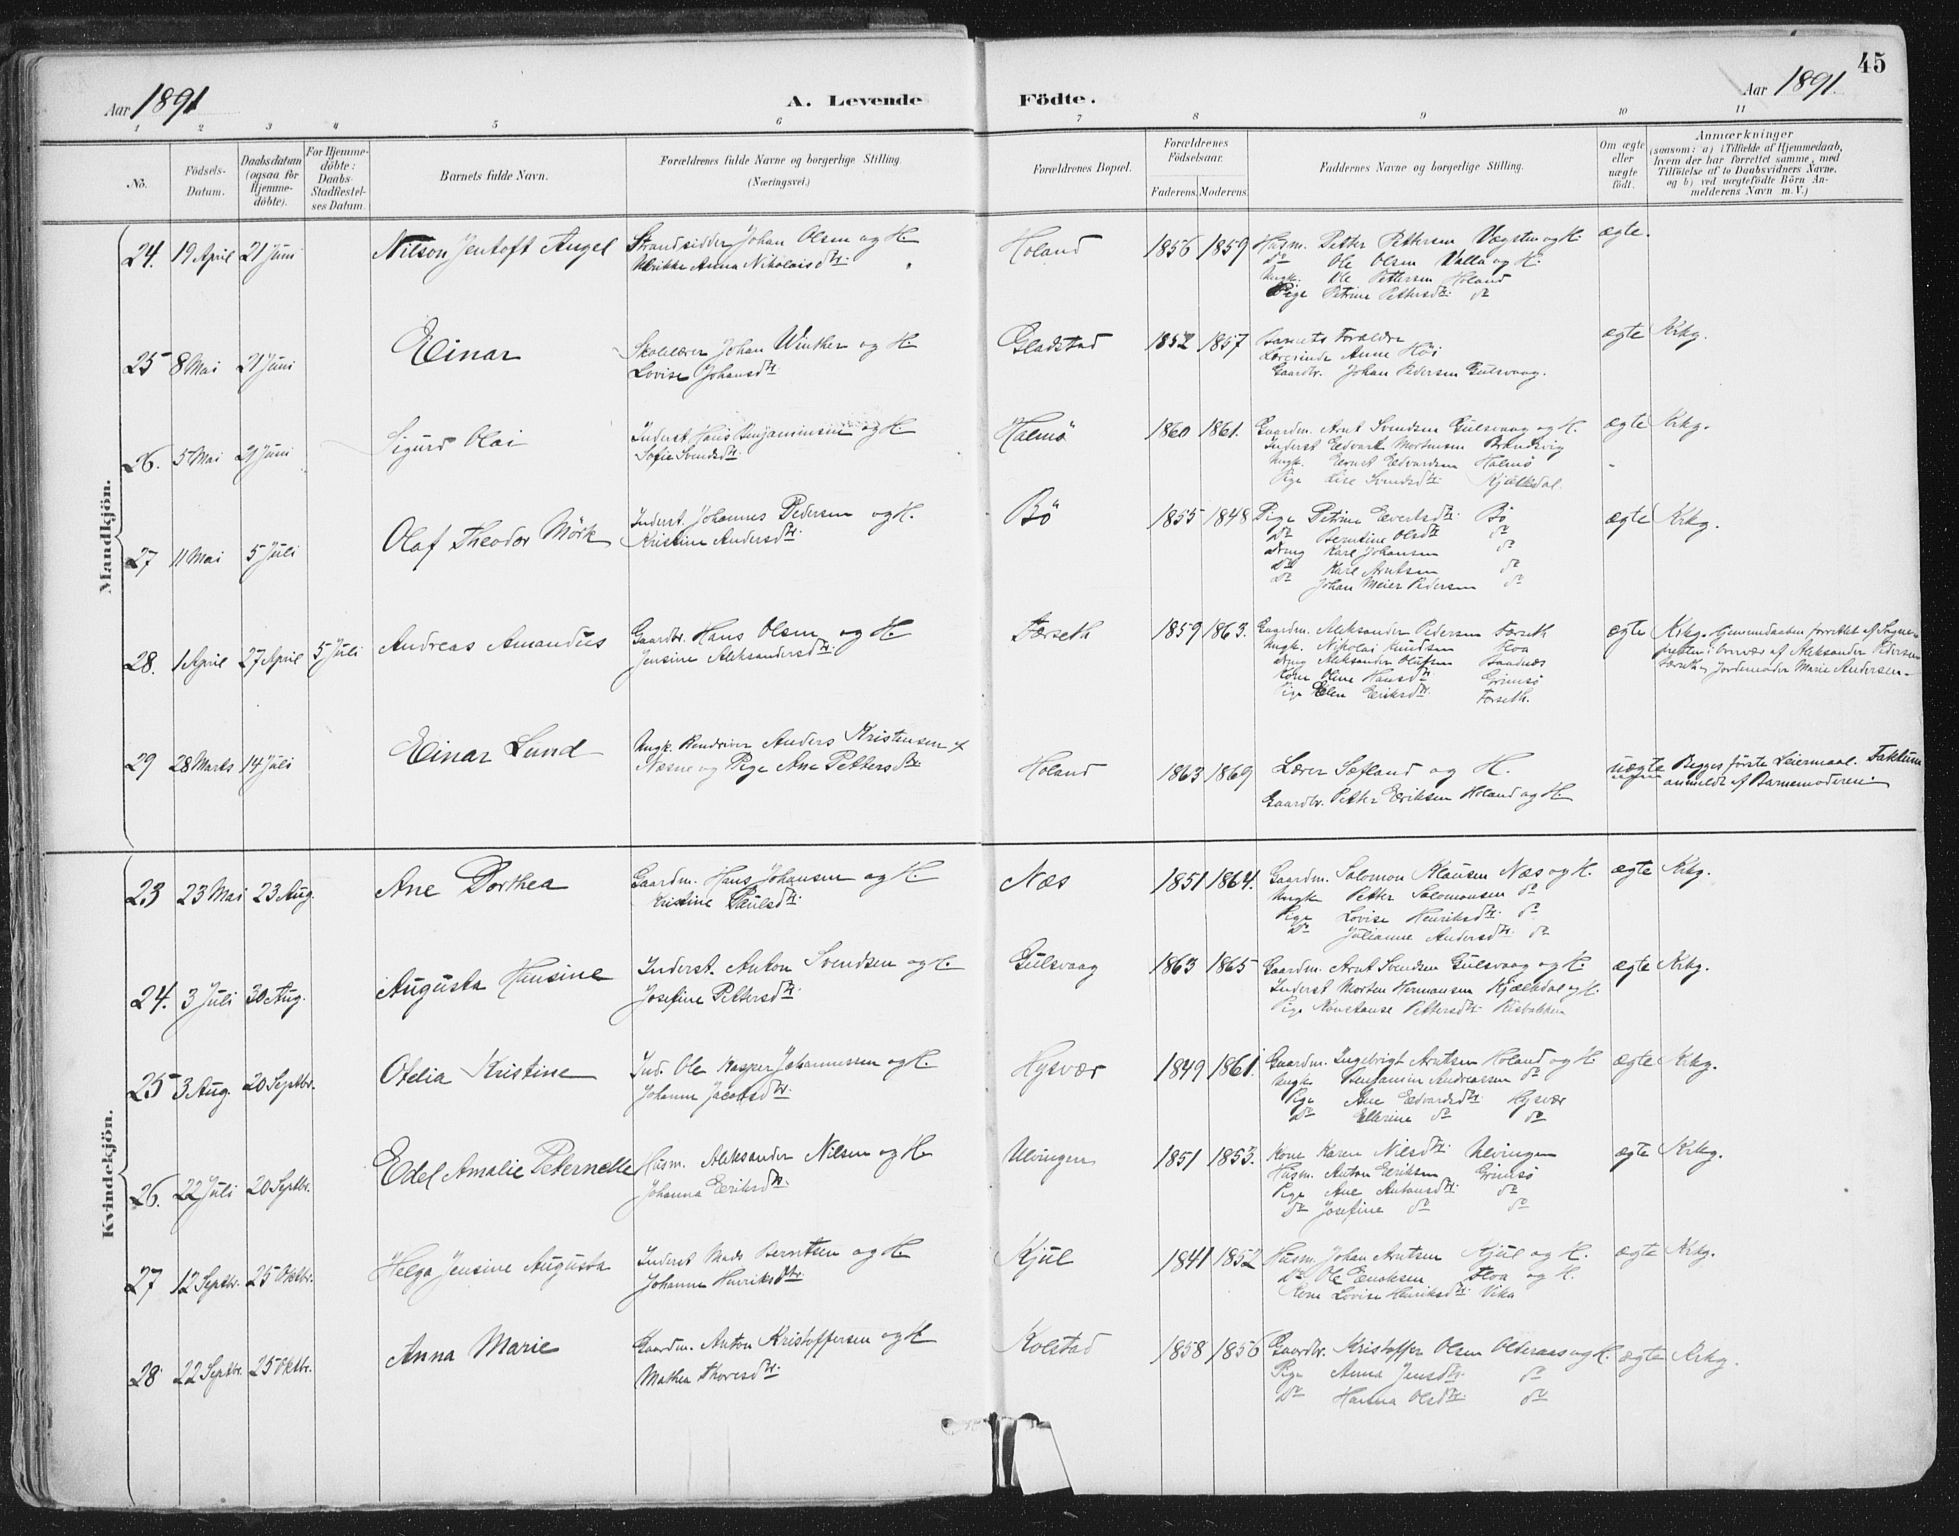 45
Aar 1891
A. Levende Födte.
Aar 1891.
1 2 3 4 5 6 7 8 9 10 11
No.
Födsels-
Datum.
Daabsdatum
(ogsaa for
Hjemme-
döbte).
For Hjemme-
döbte:
Daabs-
Stadfæstel-
ses Datum.
Barnets fulde Navn.
Forældrenes fulde Navne og borgerlige Stilling.
(Næringsvei.)
Forældrenes Bopæl.
Forældrenes
Födselsaar.
Faderens. Moderens.
Faddernes Navne og borgerlige Stilling.
Om ægte
eller
uægte
födt.
Anmærkninger
(saasom: a) i Tilfælde af Hjemmedaab,
hvem der har forrettet samme, med
Tilföielse af to Daabsvidners Navne,
og b) ved uægtefödte Börn An-
melderens Navn m. V.)
Mandkjön.
24. 19 April 21 Juni Nilson Jentoft Angel
Strandsidder Johan Olsen og H.
Ulrikke Anna Nikolaisdtr.
Holand 1856 1859
Husm. Petter Pettersen Vægsten og H.
do Ole Olsen Valla og H.
Ungk. Ole Pettersen Holand
Pige Petrine Pettersdtr. do
ægte.
25 8 Mai 21 Juni Einar
Skolelærer Johan Winther og H.
Lovise Johansdtr.
Gladstad 1852 1857
Barnets Forældre
Lærerinde Anne Höi
Gaardbr. Johan Pedersen Gulsvaag.
ægte Krkg.
26. 5 Mai 21 Juni Sigurd Olai
Inderst Hans Benjaminsen og H.
Sofie Svendsdtr.
Halmö 1860 1861.
Gaardm. Arnt Svendsen Gulsvaag og H.
Inderst Edvart Mortensen Brandsvig
Ungk. Ernst Edvardsen Halmö
Pige Lise Svendsdtr. Kjælksdal.
ægte Krkg.
27 11 Mai 5 Juli Olaf Theodor Mörk
Inderst. Johannes Pedersen og H.
Kristine Andersdtr.
Bö 1855 1848
Pige Petrine Evertsdtr. Bö
do Berntine Olsdtr. do
Dreng Karl Johansen do
do Karl Arntsen do
do Johan Meier Pedersen do
ægte Krkg.
28. 1 April 27 April 5 Juli Andreas Amandus
Gaardbr. Hans Olsen og H.
Jensine Aleksandersdtr.
Forseth 1859 1863.
Gaardm. Aleksander Pedersen Forseth
Ungk. Nikolai Knudsen Floa
Dreng Aleksander Olufsen Baadnæs
Kone Oline Hansdtr. Grimsö
Pige Elen Eriksdtr. Forseth.
ægte Krkg. Hjemmedaaben forrettet af Sogne-
presten i Overvær af Aleksander Pedersen
Forseth og Jordemoder Marie Andersen.
29 28 Marts 14 Juli Einar Lund
Ungk. Anders Kristensen af
Næsne og Pige Ane Pettersdtr.
Holand 1863 1869
Lærer Sæfland og H.
Gaardbr. Petter Eriksen Holand og H.
uægte Begges förste Leiermaal. Faktum
anmeldt af Barnemoderen.
Kvindekjön.
23 23 Mai 23 Aug. Ane Dorthea
Gaardm. Hans Johansen og H.
Kristine Paulsdtr.
Næs 1851 1864.
Gaardm. Salomon Klausen Næs og H.
Ungk. Petter Salomonsen do
Pige Lovise Henriksdtr. do
do Julianne Andersdtr. do
ægte Krkg.
24. 3 Juli 30 Aug. Augusta Hansine
Inderst. Anton Svendsen og H.
Josefine Pettersdtr.
Gulsvaag 1863 1865
Gaardm. Arnt Svendsen Gulsvaag og H.
Inderst Morten Hermansen Kjælkdal og H.
Pige Konstanse Pettersdtr. Risbakken
ægte Krkg.
25 3 Aug. 20 Septbr. Otelia Kristine
Ind. Ole Kasper Johannessen og H.
Johanne Jacobsdtr.
Hysvær 1849 1861.
Gaardm. Ingebrigt Arntsen Holand og H.
Ungk. Benjamin Andreassen do
Pige Ane Edvardsdtr. Hysvær
do Ellerine do do
ægte Krkg.
26. 22 Juli 20 Septbr. Edel Amalie Peternelle
Husm. Aleksander Nilsen og H.
Johanna Eriksdtr.
Ulvingen 1851 1853.
Kone Karen Nilsdtr. Ulvingen
Husm. Anton Eriksen Grimsö
Pige Ane Antonsdtr. do
do Josefine do do
ægte Krkg.
27 12 Septbr. 25 Oktbr. Helga Jensine Augusta
Inderst Mads Berntsen og H.
Johanne Henriksdtr.
Kjul 1841 1852
Husm. Johan Arntsen Kjul og H.
do Ole Enoksen Floa og H.
Kone Lovise Henriksdtr. Vika
ægte Krkg.
28 22 Septbr. 25 Oktbr. Anna Marie
Gaardm. Anton Kristoffersen og H.
Mathea Thoresdtr.
Kolstad 1858 1856
Gaardbr. Kristoffer Olsen Olderaas og H.
Pige Anna Jensdtr. do
do Hanna Olsdtr. do
ægte Krkg.